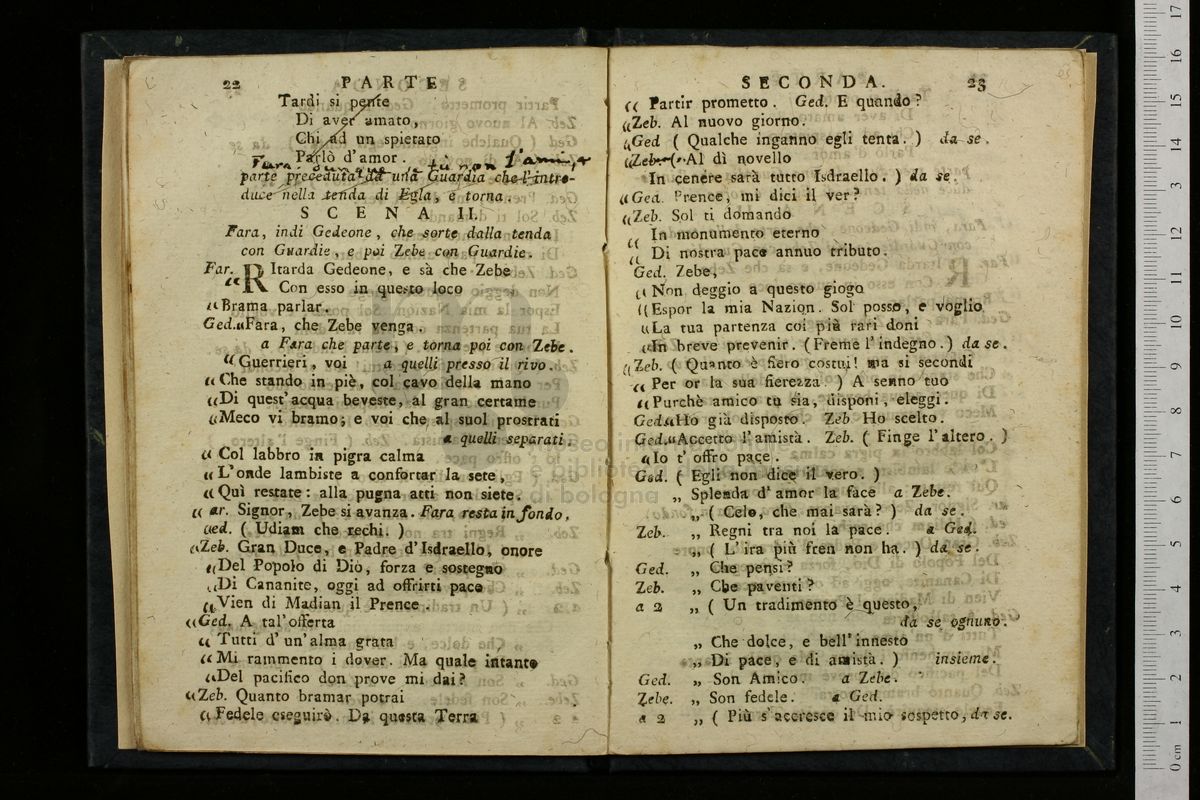 22 PARTE
Tardi si pente
Di aver amato,
Chi ad un spietato
Parlò d'amor.
Fara tù non l'ami,
parte preceduta da una Guardia che l'intro-
duce nella tenda di Egla, e torna.
SCENA II.
Fara, indi Gedeone, che sorte dalla tenda
con Guardie, e poi Zebe con Guardie.
Far. RItarda Gedeone, e sà che Zebe
“ Con esso in questo loco
“ Brama parlar.
Ged. “ Fara, che Zebe venga.
a Fara che parte, e torna poi con Zebe.
“ Guerrieri, voi a quelli presso il rivo.
“ Che stando in piè, col cavo della mano
“ Di quest'acqua beveste, al gran certame
“ Meco vi bramo; e voi che al suol prostrati
a quelli separati.
“ Col labbro in pigra calma
“ L'onde lambiste a confortar la sete,
“ Quì restate: alla pugna atti non siete.
“ ar. Signor, Zebe si avanza. Fara resta in fondo.
“ ed. ( Udiam che rechi. )
“ Zeb. Gran Duce, e Padre d'Isdraello, onore
“ Del Popolo di Dio, forza e sostegno
“ Di Cananite, oggi ad offrirti pace
“ Vien di Madian il Prence.
“ Ged. A tal'offerta
“ Tutti d'un'alma grata
“ Mi rammento i dover. Ma quale intanto
“ Del pacifico don prove mi dai?
“ Zeb. Quanto bramar potrai
“ Fedele eseguirò. Da questa Terra
SECONDA. 23
“ Partir prometto. Ged. E quando?
“ Zeb. Al nuovo giorno.
“ Ged ( Qualche inganno egli tenta. ) da se.
“ Zeb. ( Al dì novello
In cenere sarà tutto Isdraello. ) da se.
“ Ged. Prence, mi dici il ver?
“ Zeb. Sol ti domando
“ In monumento eterno
“ Di nostra pace annuo tributo.
Ged. Zebe,
“ Non deggio a questo giogo
“ Espor la mia Nazion. Sol posso, e voglio
“ La tua partenza coi più rari doni
“ In breve prevenir. (Freme l'indegno.) da se.
“ Zeb. ( Quanto è fiero costui! ma si secondi
“ Per or la sua fierezza. ) A senno tuo
“ Purchè amico tu sia, disponi, eleggi.
Ged. “ Ho già disposto. Zeb. Ho scelto.
Ged. “ Accetto l'amistà. Zeb. ( Finge l'altero. )
“ Io t'offro pace.
Ged. ( Egli non dice il vero. )
„ Splenda d'amor la face a Zebe.
„ ( Celo, che mai sarà? ) da se.
Zeb. „ Regni tra noi la pace. a Ged.
„ ( L'ira più fren non ha. ) da se.
Ged. „ Che pensi?
Zeb. „ Che paventi?
a 2 „ ( Un tradimento è questo,
da se ognuno.
„ Che dolce, e bell'innesto
„ Di pace, e di amistà. ) insieme.
Ged. „ Son Amico. a Zebe.
Zebe. „ Son fedele. a Ged.
a 2 „ ( Più s'accresce il mio sospetto, da se.